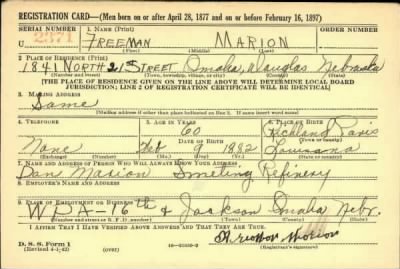 REGISTRATION CARD—(Men born on or after April 28, 1877 and on or before February 16, 1897)
SERIAL NUMBER 1. NAME (Print) ORDER NUMBER
U 2371 FREEMAN MARION
(First) (Middle) (Last)
2. PLACE OF RESIDENCE (Print)
1841 NORTH 21 STREET Omaha, Douglas Nebraska
(Number and street) (Town, township, village, or city) (County) (State)
[THE PLACE OF RESIDENCE GIVEN ON THE LINE ABOVE WILL DETERMINE LOCAL BOARD
JURISDICTION; LINE 2 OF REGISTRATION CERTIFICATE WILL BE IDENTICAL]
3. MAILING ADDRESS
Same
[Mailing address if other than place indicated on line 2. If same insert word same]
4. TELEPHONE 5. AGE IN YEARS 6. PLACE OF BIRTH
60 Richland
DATE OF BIRTH (Town or county)
None Feb 9 1882 Louisiana
(Exchange) (Number) (Mo.) (Day) (Yr.) (State or country)
7. NAME AND ADDRESS OF PERSON WHO WILL ALWAYS KNOW YOUR ADDRESS
Dan Marion Smelting Refinery
8. EMPLOYER'S NAME AND ADDRESS
9. PLACE OF EMPLOYMENT OR BUSINESS
WPA—16th & Jackson Omaha Nebr.
(Number and street or R. F. D. number) (Town) (County) (State)
I AFFIRM THAT I HAVE VERIFIED ABOVE ANSWERS AND THAT THEY ARE TRUE.
D. S. S. Form 1
(Revised 4-1-42) (over) Marion
(Registrant's signature)